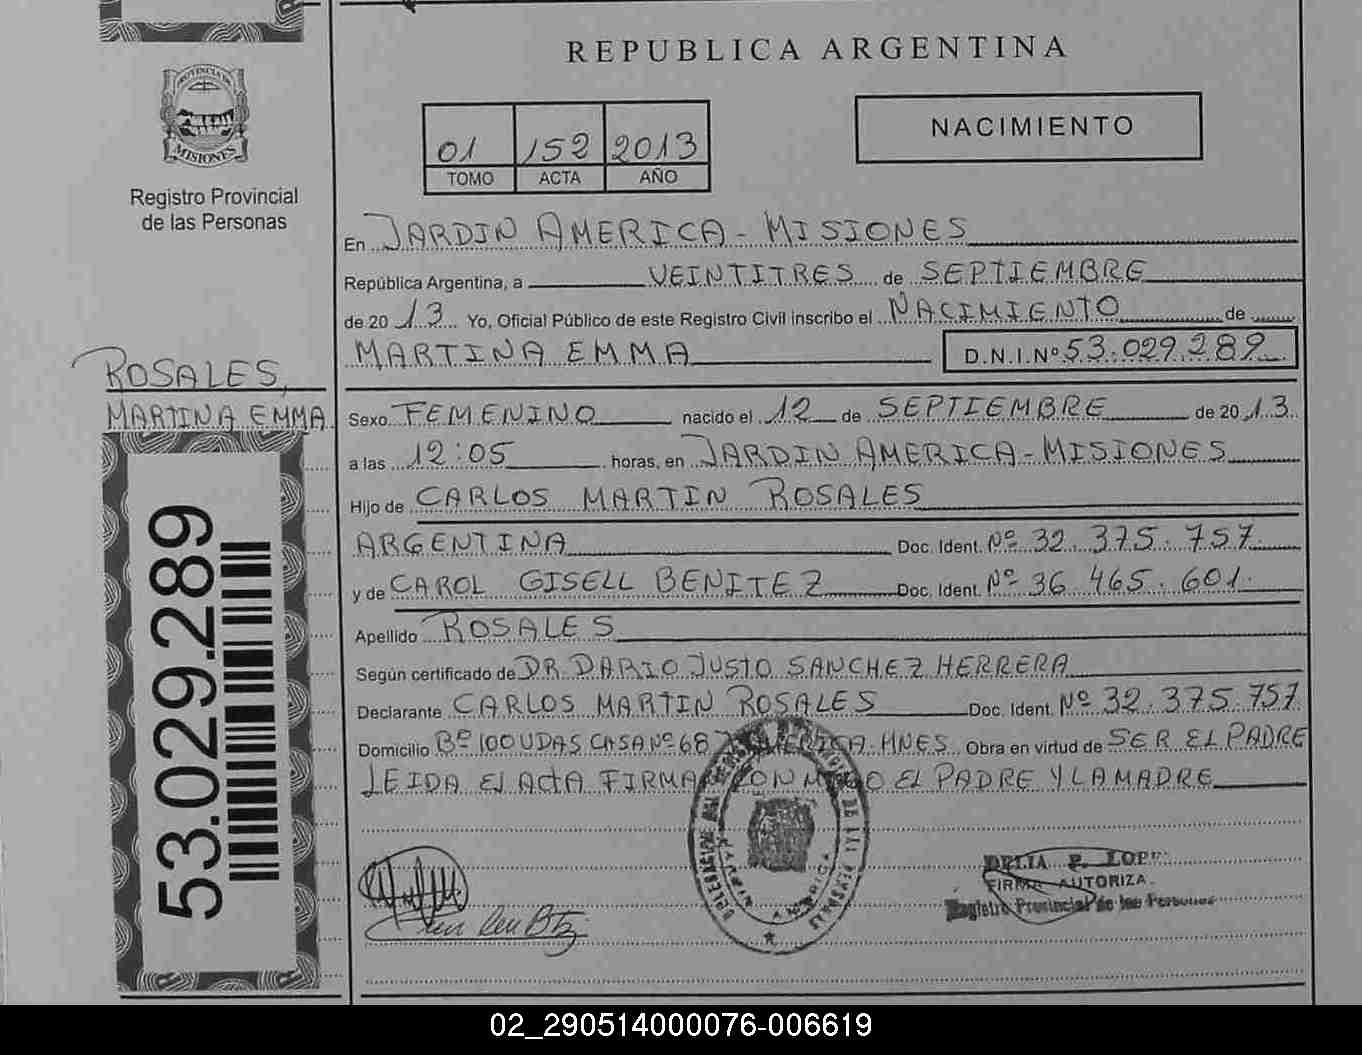 REPUBLICA ARGENTINA
PROVINCIA DE
MISIONES
Registro Provincial
de las Personas
01 152 2013
TOMO ACTA AÑO
NACIMIENTO
En JARDIN AMERICA - MISIONES
República Argentina, a VEINTITRES de SEPTIEMBRE
de 20 13 Yo, Oficial Público de este Registro Civil inscribo el NACIMIENTO de
MARTINA EMMA D.N.I.Nº 53.029.289
ROSALES,
MARTINA EMMA
Sexo FEMENINO nacido el 12 de SEPTIEMBRE de 20 13.
a las 12:05 horas, en JARDIN AMERICA - MISIONES
Hijo de CARLOS MARTIN ROSALES
ARGENTINA Doc. Ident. Nº 32.375.757
y de CAROL GISELL BENITEZ Doc. Ident. Nº 36.465.601.
Apellido ROSALES
Según certificado de DR. DARIO JUSTO SANCHEZ HERRERA
Declarante CARLOS MARTIN ROSALES Doc. Ident. Nº 32.375.757
Domicilio Bº 100 UDAS CASA Nº 68 AMERICA - MNES. Obra en virtud de SER EL PADRE
LEIDA EL ACTA FIRMA CONMIGO EL PADRE Y LA MADRE
53.029.289
DELIA E. LOPE
FIRMA AUTORIZA
Registro Provincial de las Personas
02_290514000076-006619